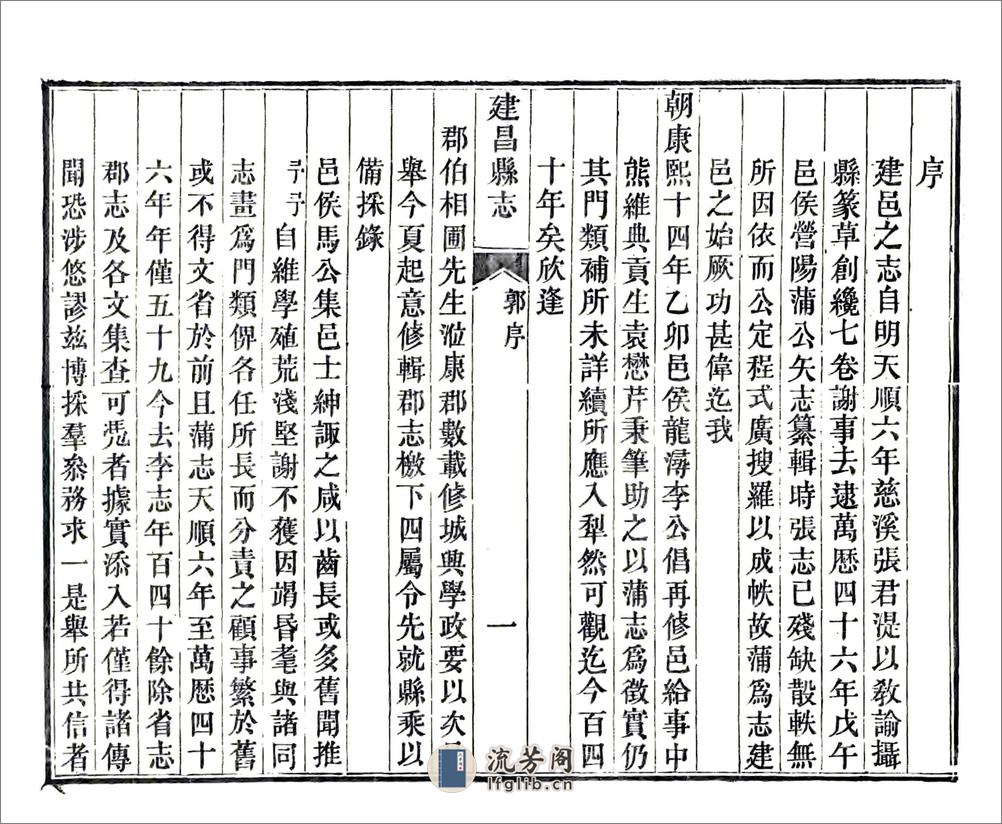 序
建邑之志自明天順六年慈溪張君湜以教諭攝
縣篆草創纔七卷謝事去逮萬曆四十六年戊午
邑侯營陽蒲公矢志纂輯時張志已殘缺散軼無
所因依而公定程式廣搜羅以成帙故蒲爲志建
邑之始厥功甚偉迄我
朝康熙十四年乙卯邑侯龍潯李公倡再修邑給事中
熊維典貢生袁懋芹秉筆助之以蒲志爲徵實仍
其門類補所未詳續所應入犁然可觀迄今百四
十年矣欣逢
建昌縣志
郭序
一
郡伯相圃先生涖康郡數載修城興學政要以次
舉今夏起意修輯郡志檄下四屬令先就縣乘以
備採錄
邑侯馬公集邑士紳諏之咸以齒長或多舊聞推
予予自維學殖荒淺堅謝不獲因竭昏耄與諸同
志畫爲門類俾各任所長而分責之顧事繁於舊
或不得文省於前且蒲志天順六年至萬曆四十
六年年僅五十九今去李志年百四十餘除省志
郡志及各文集查可凭者據實添入若僅得諸傳
聞恐涉悠謬茲博採羣叅務求一是舉所共信者
流芳阁
lfglib.cn